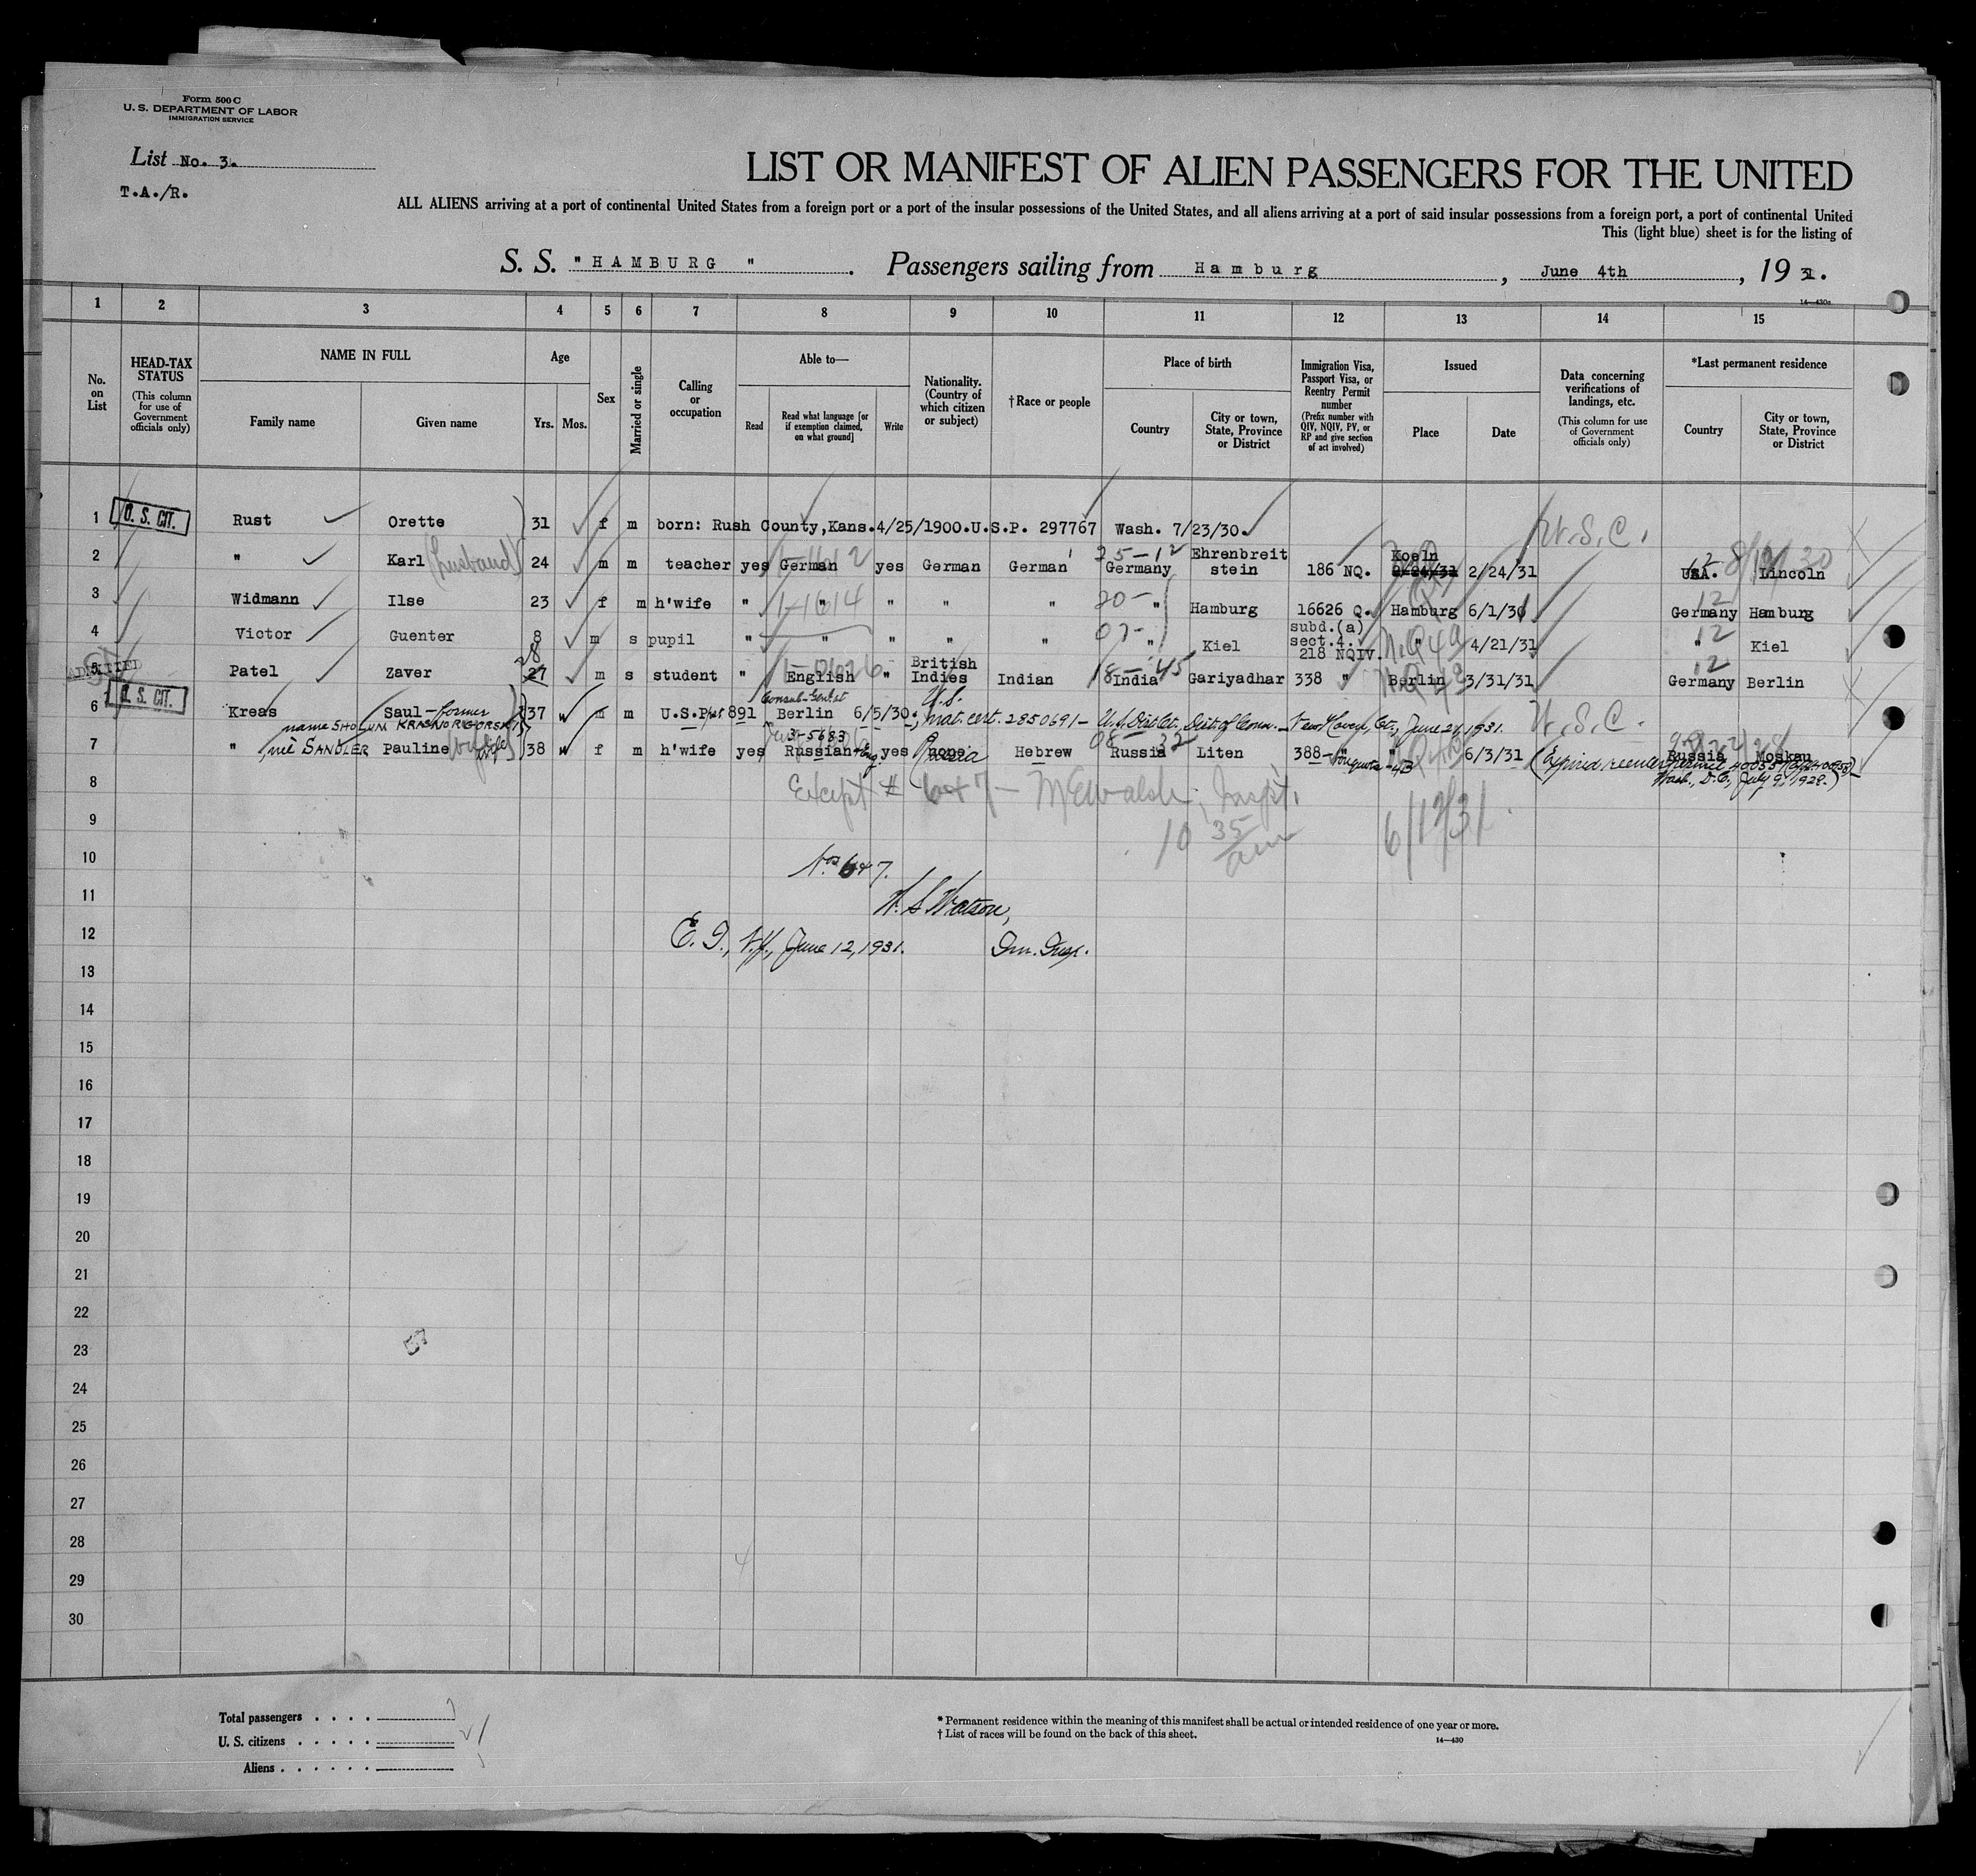 Form 500 C
U. S. DEPARTMENT OF LABOR
IMMIGRATION SERVICE
List No. 3.
T.A./R.
LIST OR MANIFEST OF ALIEN PASSENGERS FOR THE UNITED
ALL ALIENS arriving at a port of continental United States from a foreign port or a port of the insular possessions of the United States, and all aliens arriving at a port of said insular possessions from a foreign port, a port of continental United
This (light blue) sheet is for the listing of
S. S. "HAMBURG". Passengers sailing from Hamburg, June 4th, 1931.
14—430a
1 2 3 4 5 6 7 8 9 10 11 12 13 14 15
No. on List
HEAD-TAX STATUS
(This column for use of Government officials only)
NAME IN FULL
Family name
Given name
Age
Yrs. Mos.
Sex
Married or single
Calling or occupation
Able to—
Read
Read what language [or if exemption claimed, on what ground]
Write
Nationality. (Country of which citizen or subject)
†Race or people
Place of birth
Country
City or town, State, Province or District
Immigration Visa, Passport Visa, or Reentry Permit number
(Prefix number with QIV, NQIV, PV, or RP and give section of act involved)
Issued
Place
Date
Data concerning verifications of landings, etc.
(This column for use of Government officials only)
*Last permanent residence
Country
City or town, State, Province or District
1 U. S. CIT. Rust Orette 31 f m born: Rush County,Kans.4/25/1900.U.S.P. 297767 Wash. 7/23/30. U.S.C.
2 " Karl (husband) 24 m m teacher yes German yes German German 25-12 Germany Ehrenbreit stein 186 NQ. Koeln 2/24/31 2/24/31 USA. Lincoln
3 Widmann Ilse 23 f m h'wife " " " " " 20- " Hamburg 16626 Q. Hamburg 6/1/31 12 Germany Hamburg
4 Victor Guenter 8 m s pupil " " " " " 07- " Kiel subd.(a) sect.4. 218 NQIV. " 4/21/31 12 " Kiel
5 ADMITTED Patel Zaver 27 28 m s student " English " British Indies Indian 18-45 India Gariyadhar 338 " Berlin 3/31/31 12 Germany Berlin
6 U. S. CIT. Kreas Saul - former 37 m m U.S.P. 891 Consul-Gen. at Berlin 6/5/30; U.S. nat. cert. 2850691 - U.S. Dist. Ct., Dist. of Conn. - New Haven, Ct., June 24, 1931. U.S.C.
name SHOLUM KRASNORIGORSKI
7 " , née SANDLER Pauline wife 38 f m h'wife yes Russian yes none Russia Hebrew Russia Liten 388 - Nonquota - 4B " 6/3/31 Russia Moskau
(Expired reentry permit
Wash., D.C., July 9, 1928.)
8 Except # 6 & 7 - McEwalsh, Inspt.
9 10 35 am 6/12/31
10 Nos 6 & 7.
11 W. S. Watson,
12 E. I., N.Y., June 12, 1931. Imm. Insp.
13
14
15
16
17
18
19
20
21
22
23
24
25
26
27
28
29
30
Total passengers . . . .
U. S. citizens . . . . .
Aliens . . . . . .
* Permanent residence within the meaning of this manifest shall be actual or intended residence of one year or more.
† List of races will be found on the back of this sheet.
14—430